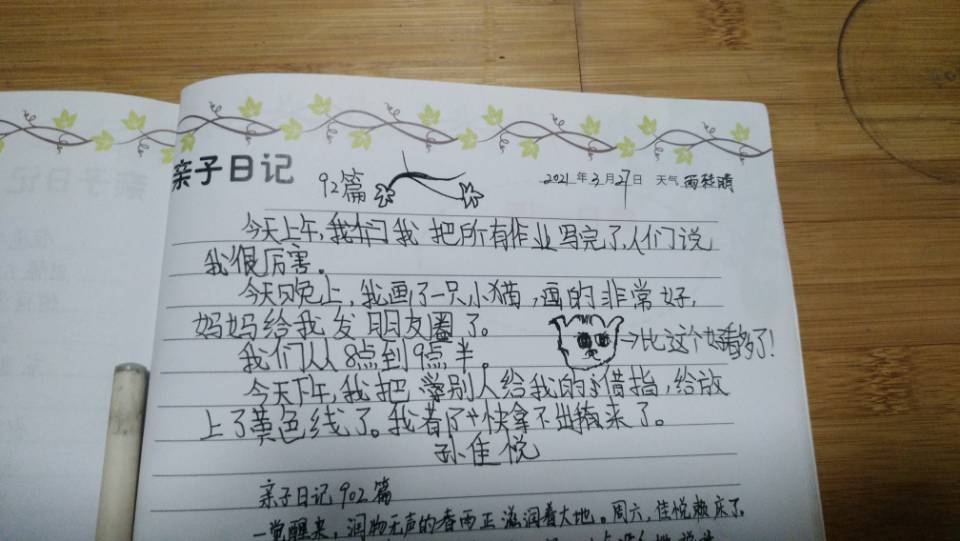 亲子日记 92篇 2021年3月27日 天气 雨转晴
今天上午,我们我把所有作业写完了,人们说
我很厉害。
今天晚上,我画了一只小猫,画的非常好,
妈妈给我发朋友圈了。
→比这个好看多了!
我们从8点到9点半。
今天下午,我把别人给我的借指,给放
上了黄色线了。我看了快拿下出来了。
孙佳悦
亲子日记902篇
一觉醒来,润物无声的春雨正滋润着大地。周六,佳悦赖床了。